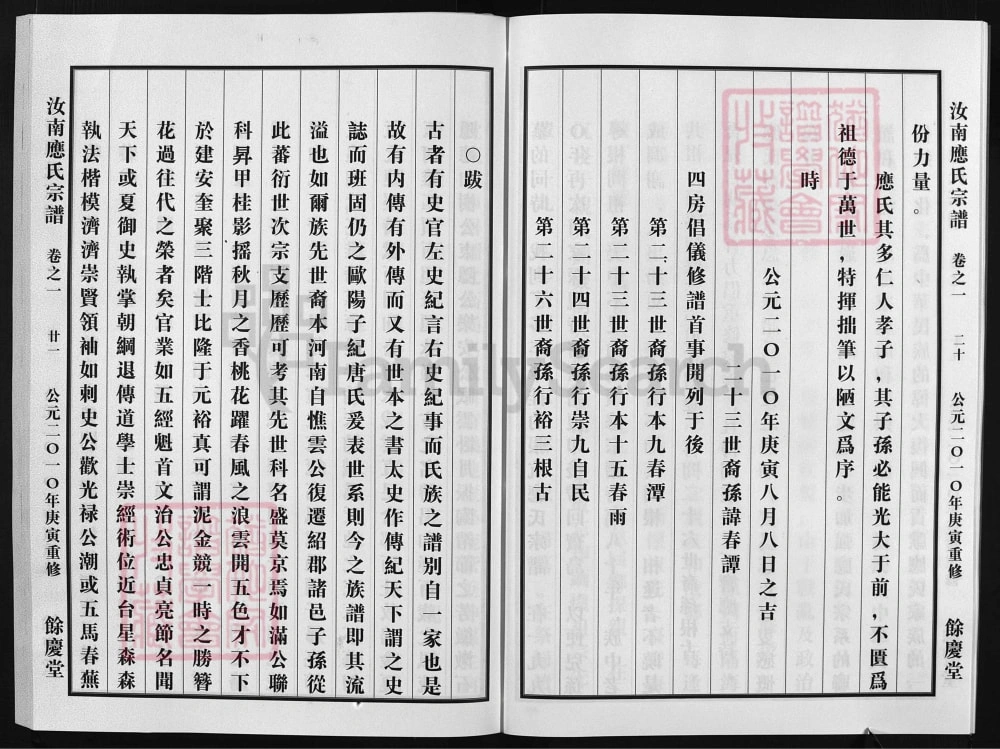 汝南應氏宗譜 卷之一 二十 公元二〇一〇年庚寅重修 餘慶堂
份力量。
應氏其多仁人孝子,其子孫必能光大于前,不匱爲
祖德于萬世,特揮拙筆以陋文爲序。
時
公元二〇一〇年庚寅八月八日之吉
二十三世裔孫諱春譚
四房倡儀修譜首事開列于後
第二十三世裔孫行本九春潭
第二十三世裔孫行本十五春雨
第二十四世裔孫行崇九自民
第二十六世裔孫行裕三根古
〇跋
古者有史官左史紀言右史紀事而氏族之譜别自一家也是
故有内傳有外傳而又有世本之書太史作傳紀天下謂之史
誌而班固仍之歐陽子紀唐氏爰表世系則今之族譜即其流
溢也如爾族先世裔本河南自憔雲公復遷紹郡諸邑子孫從
此蕃衍世次宗支歷歷可考其先世科名盛莫京焉如滿公聯
科昇甲桂影摇秋月之香桃花躍春風之浪雲開五色才不下
於建安奎聚三階士比隆于元裕真可謂泥金競一時之勝簪
花過往代之榮者矣官業如五經魁首文治公忠貞亮節名聞
天下或夏御史執掌朝綱退傳道學士崇經術位近台星森森
執法楷模濟濟崇賢領袖如刺史公歡光禄公潮或五馬春蕪
汝南應氏宗譜 卷之一 廿一 公元二〇一〇年庚寅重修 餘慶堂
FamilySearch